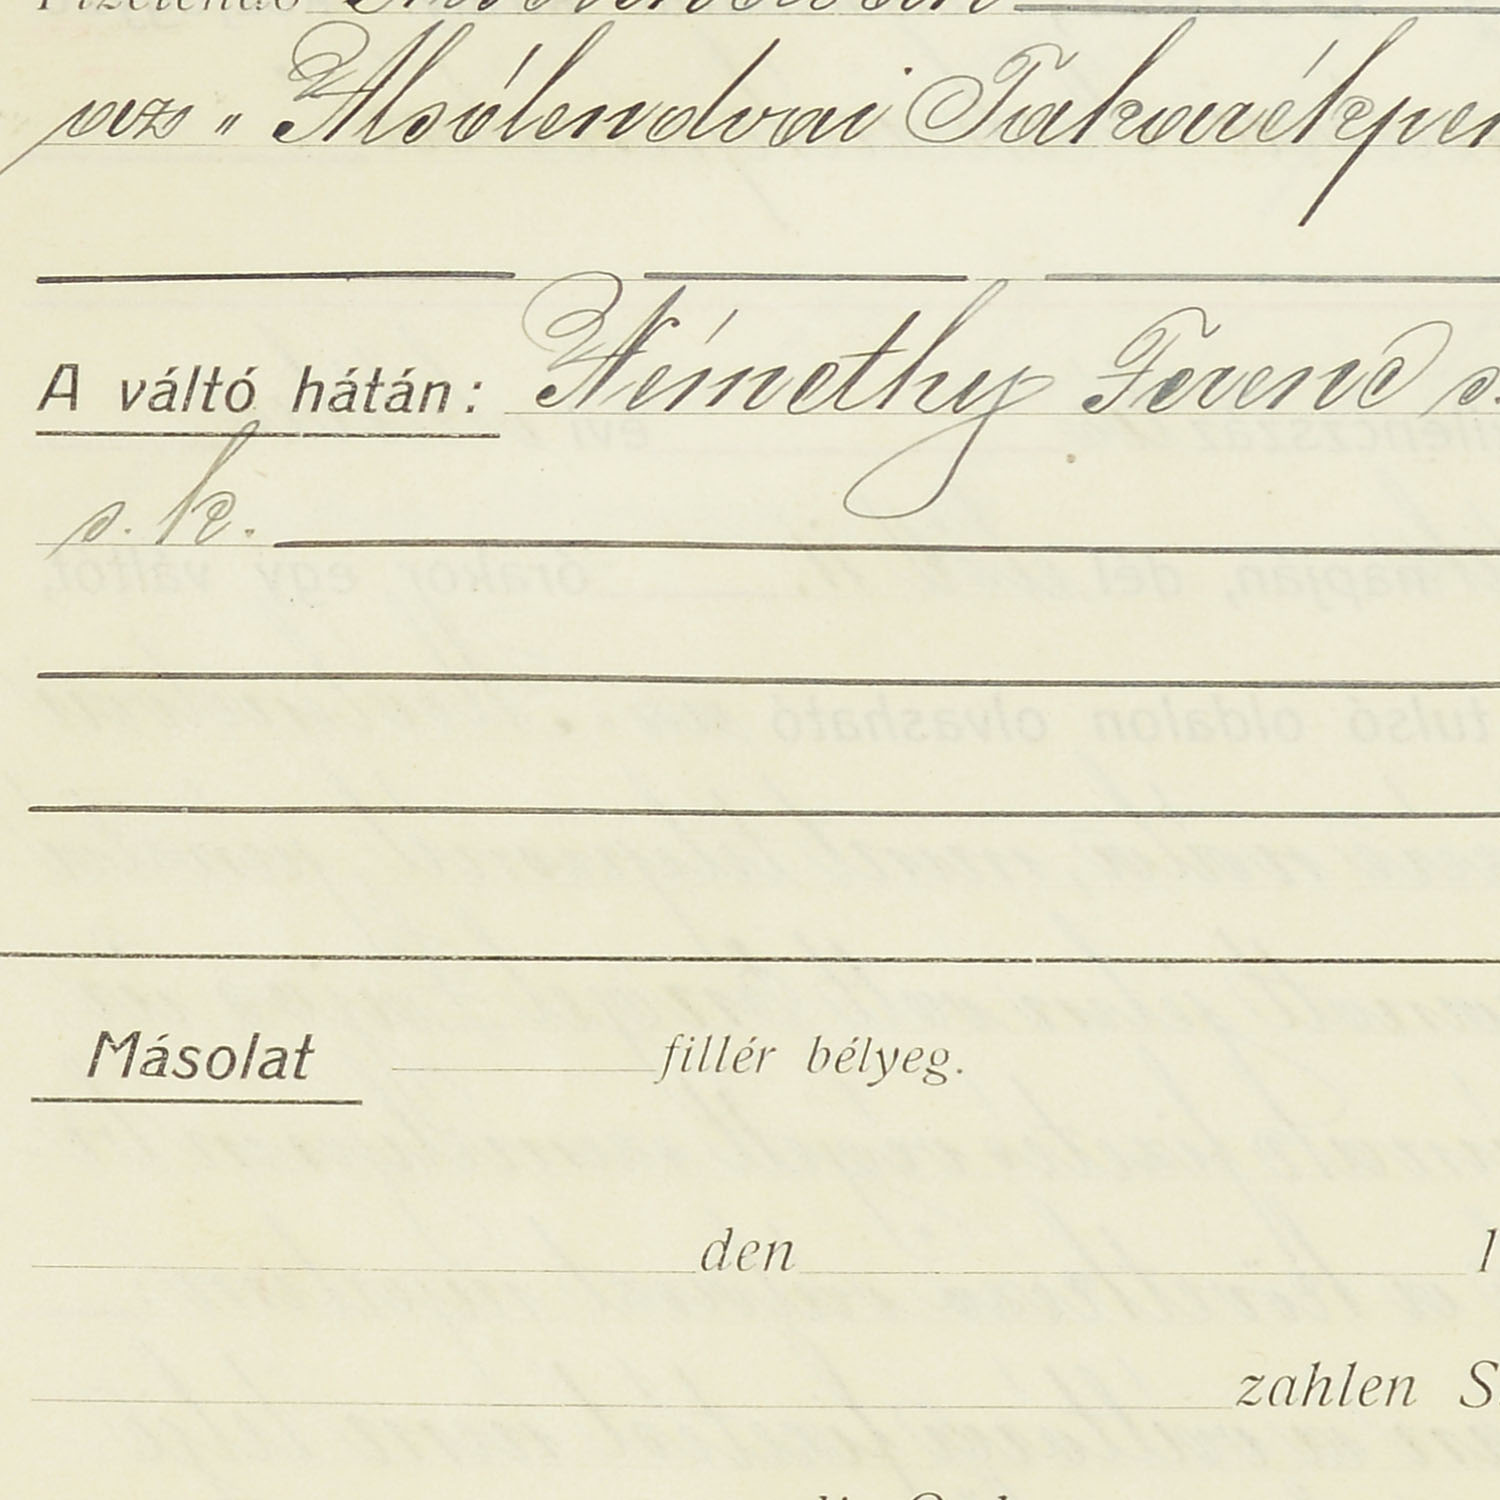 Fizetendő
az „Alsólendvai Takarékpén
A váltó hátán: Némethy Ferenc s.
s. k.
Másolat fillér bélyeg.
den 1
zahlen S